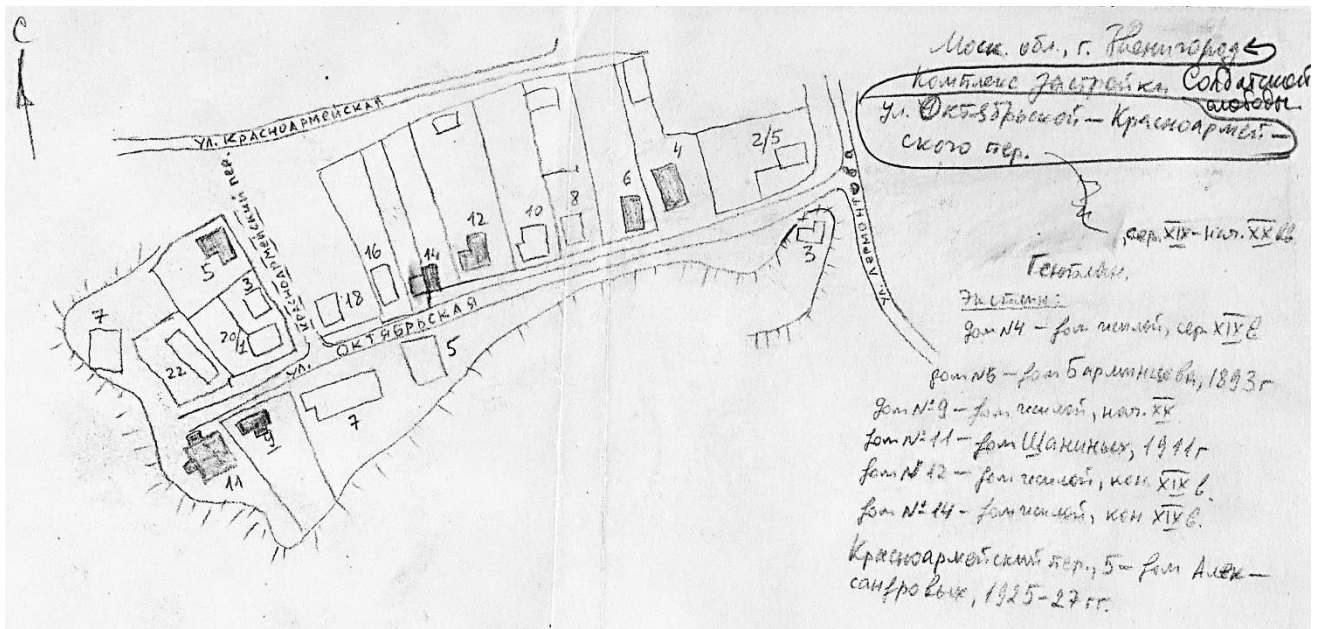 С
ул. КРАСНОАРМЕЙСКАЯ
КРАСНОАРМЕЙСКИЙ ПЕР.
ул. ОКТЯБРЬСКАЯ
ул. ЛЕРМОНТОВА
2/5
4
6
8
10
12
14
16
18
3
5
3
20/1
22
7
5
7
9
11
Моск. обл., г. Звенигород
Комплекс застройки Солдатской
слободы
ул. Октябрьской — Красноармей-
ского пер.
, сер. XIX - нач. XX вв
Генплан.
Экспликация:
дом №4 - дом жилой, сер. XIX в
дом №6 - дом Барминцева, 1893 г
дом №9 - дом жилой, нач. XX
дом №11 - дом Шаниных, 1911 г
дом №12 - дом жилой, кон. XIX в.
дом №14 - дом жилой, кон XIX в.
Красноармейский пер., 5 - дом Алек-
сандровых, 1925-27 гг.